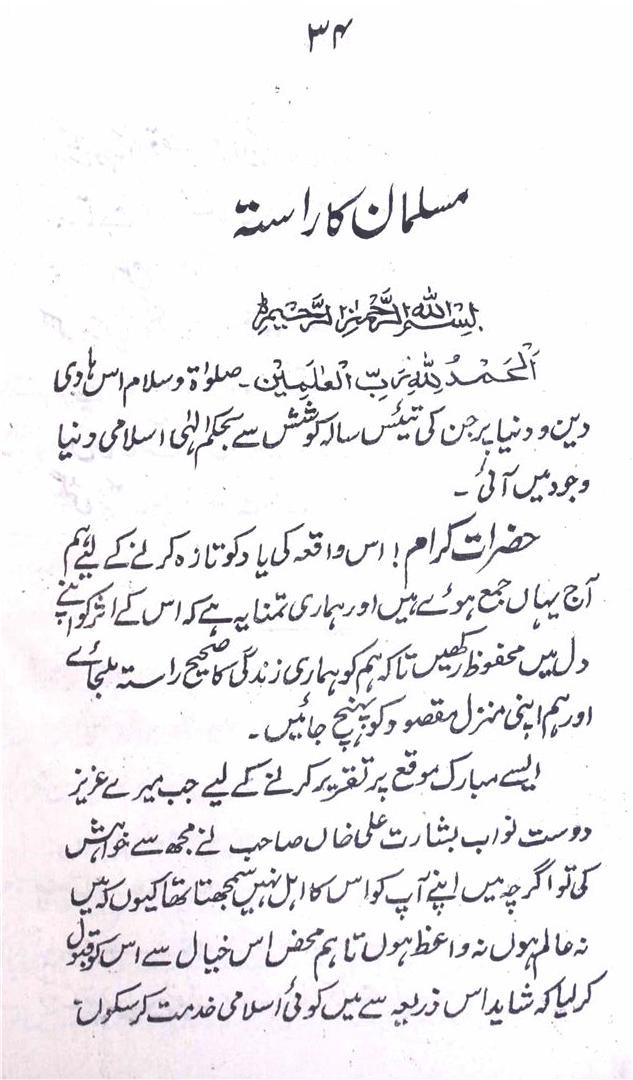 ۳۴
مسلمان کا راستہ
بِسْمِ اللهِ الرَّحْمٰنِ الرَّحِيْمِ
اَلْحَمْدُ لِلّٰهِ رَبِّ الْعٰلَمِيْن۔ صلوٰۃ و سلام اس ہادی
دین و دنیا پر جن کی تیئس سالہ کوشش سے بحکم الٰہی اسلامی دنیا
وجود میں آئی ۔
حضرات کرام! اس واقعہ کی یاد کو تازہ کرنے کے لیے ہم
آج یہاں جمع ہوئے ہیں اور ہماری تمنا یہ ہے کہ اس کے اثر کو اپنے
دل میں محفوظ رکھیں تاکہ ہم کو ہماری زندگی کا صحیح راستہ ملجائے
اور ہم اپنی منزل مقصود کو پہنچ جائیں ۔
ایسے مبارک موقع پر تقریر کرنے کے لیے جب میرے عزیز
دوست نواب بشارت علی خاں صاحب نے مجھ سے خواہش
کی تو اگرچہ میں اپنے آپ کو اس کا اہل نہیں سمجھتا تھا کیوں کہ میں
نہ عالم ہوں نہ واعظ ہوں تاہم محض اس خیال سے اس کو قبول
کر لیا کہ شاید اس ذریعہ سے میں کوئی اسلامی خدمت کر سکوں۔